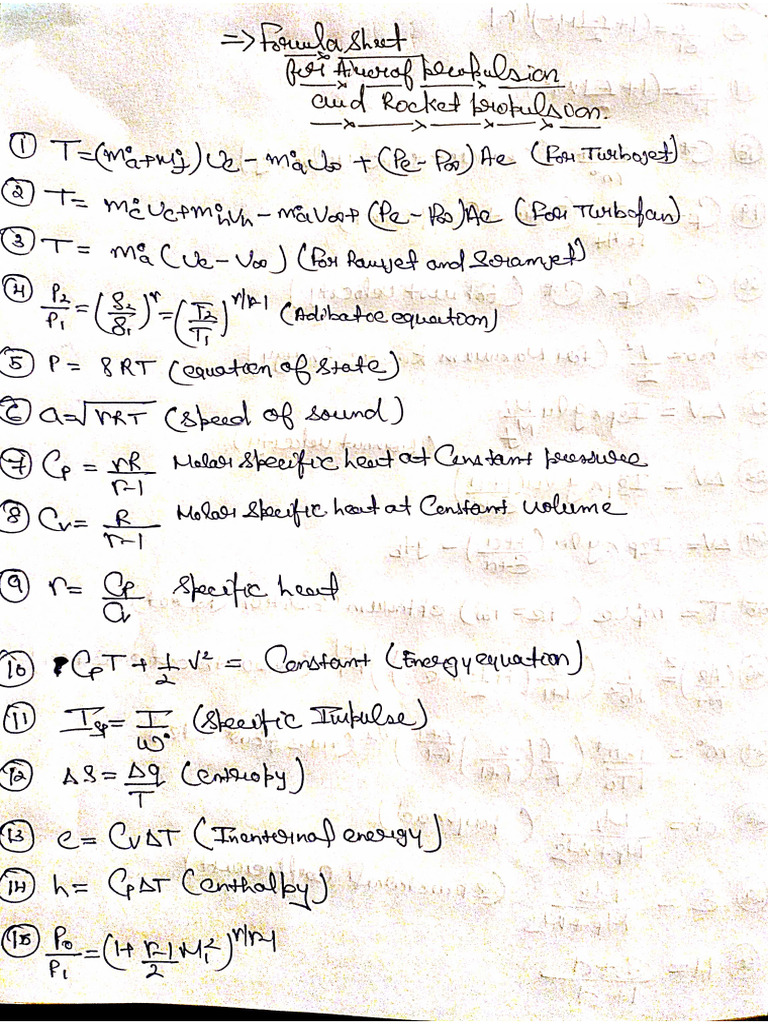 => Formula Sheet
for Aircraft propulsion
and Rocket propulsion.
① T = (ṁa+ṁf)Ue - ṁaU∞ + (Pe - P∞) Ae (For Turbojet)
② T = ṁcUc+ṁhVh - ṁaV∞+ (Pe - P∞)Ae (For Turbofan)
③ T = ṁa (Ue - V∞) (For Ramjet and Scramjet)
④ P2/P1 = (ρ2/ρ1)^r = (T2/T1)^r/r-1 (Adibatic equation)
⑤ P = ρRT (equation of State)
⑥ a=√rRT (Speed of sound)
⑦ Cp = rR/r-1 Molar Specific heat at Constant pressure
⑧ Cv = R/r-1 Molar Specific heat at Constant volume
⑨ r = Cp/Cv Specific heat
⑩ CpT + 1/2 V² = Constant (Energy equation)
⑪ Isp = I/ẇ (Specific Impulse)
⑫ ΔS = Δq/T (entropy)
⑬ e = CvΔT (Inenternal energy)
⑭ h = CpΔT (enthalpy)
⑮ P0/P1 = (1+ r-1/2 M1²)^r/r-1